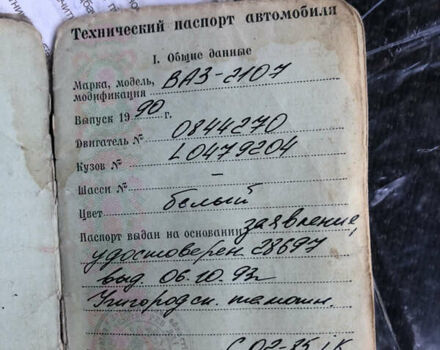 Технический паспорт автомобиля
I. Общие данные
Марка, модель, ВАЗ-2107
модификация
Выпуск 1990 г.
Двигатель № 0844270
Кузов № L0479204
Шасси № –
Цвет белый
Паспорт выдан на основании заявление,
удостоверен 28697
выд 06.10.92г
Ужгородск. таможн.